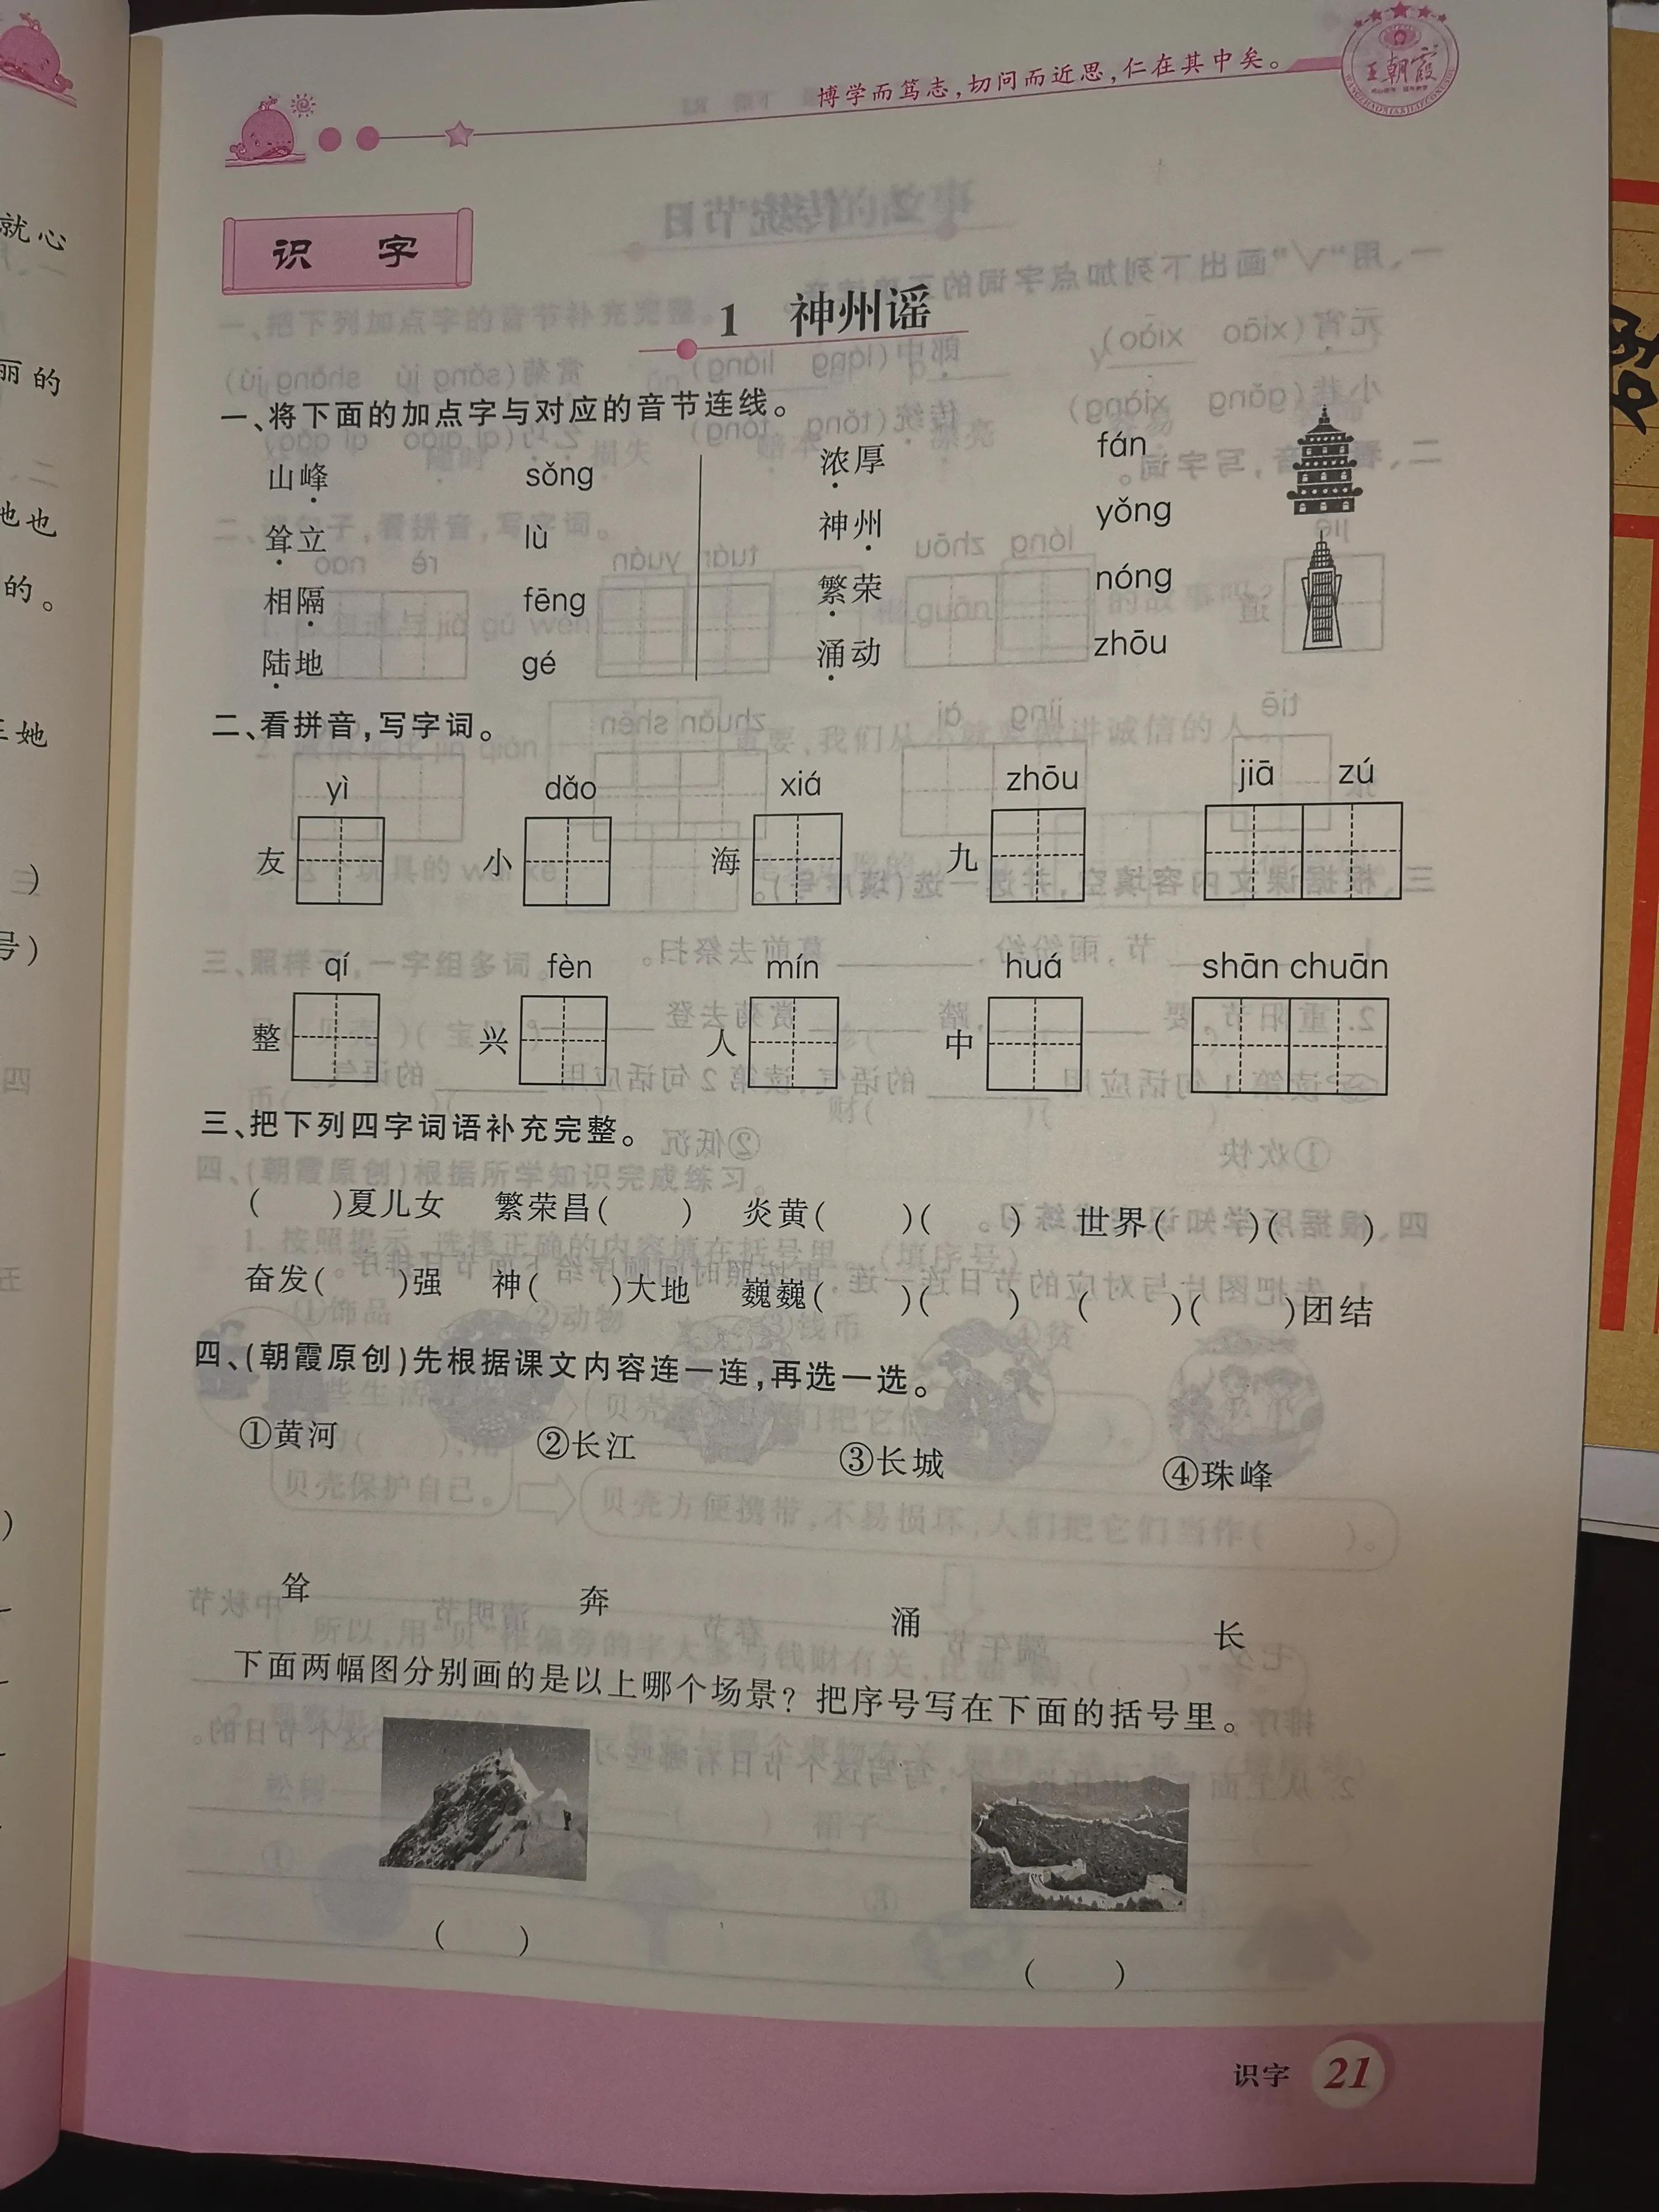 博学而笃志,切问而近思,仁在其中矣。
王朝霞
识 字
1 神州谣
一、将下面的加点字与对应的音节连线。
山峰 sǒng 浓厚 fán
耸立 lù 神州 yǒng
相隔 fēng 繁荣 nóng
陆地 gé 涌动 zhōu
二、看拼音,写字词。
yì dǎo xiá zhōu jiā zú
友 小 海 九
qí fèn mín huá shān chuān
整 兴 人 中
三、把下列四字词语补充完整。
( )夏儿女 繁荣昌( ) 炎黄( )( ) 世界( )( )
奋发( )强 神( )大地 巍巍( )( ) ( )( )团结
四、(朝霞原创)先根据课文内容连一连,再选一选。
①黄河 ②长江 ③长城 ④珠峰
耸 奔 涌 长
下面两幅图分别画的是以上哪个场景?把序号写在下面的括号里。
( ) ( )
识字 21
就心
丽的
地也
的。
她
)
号)
)